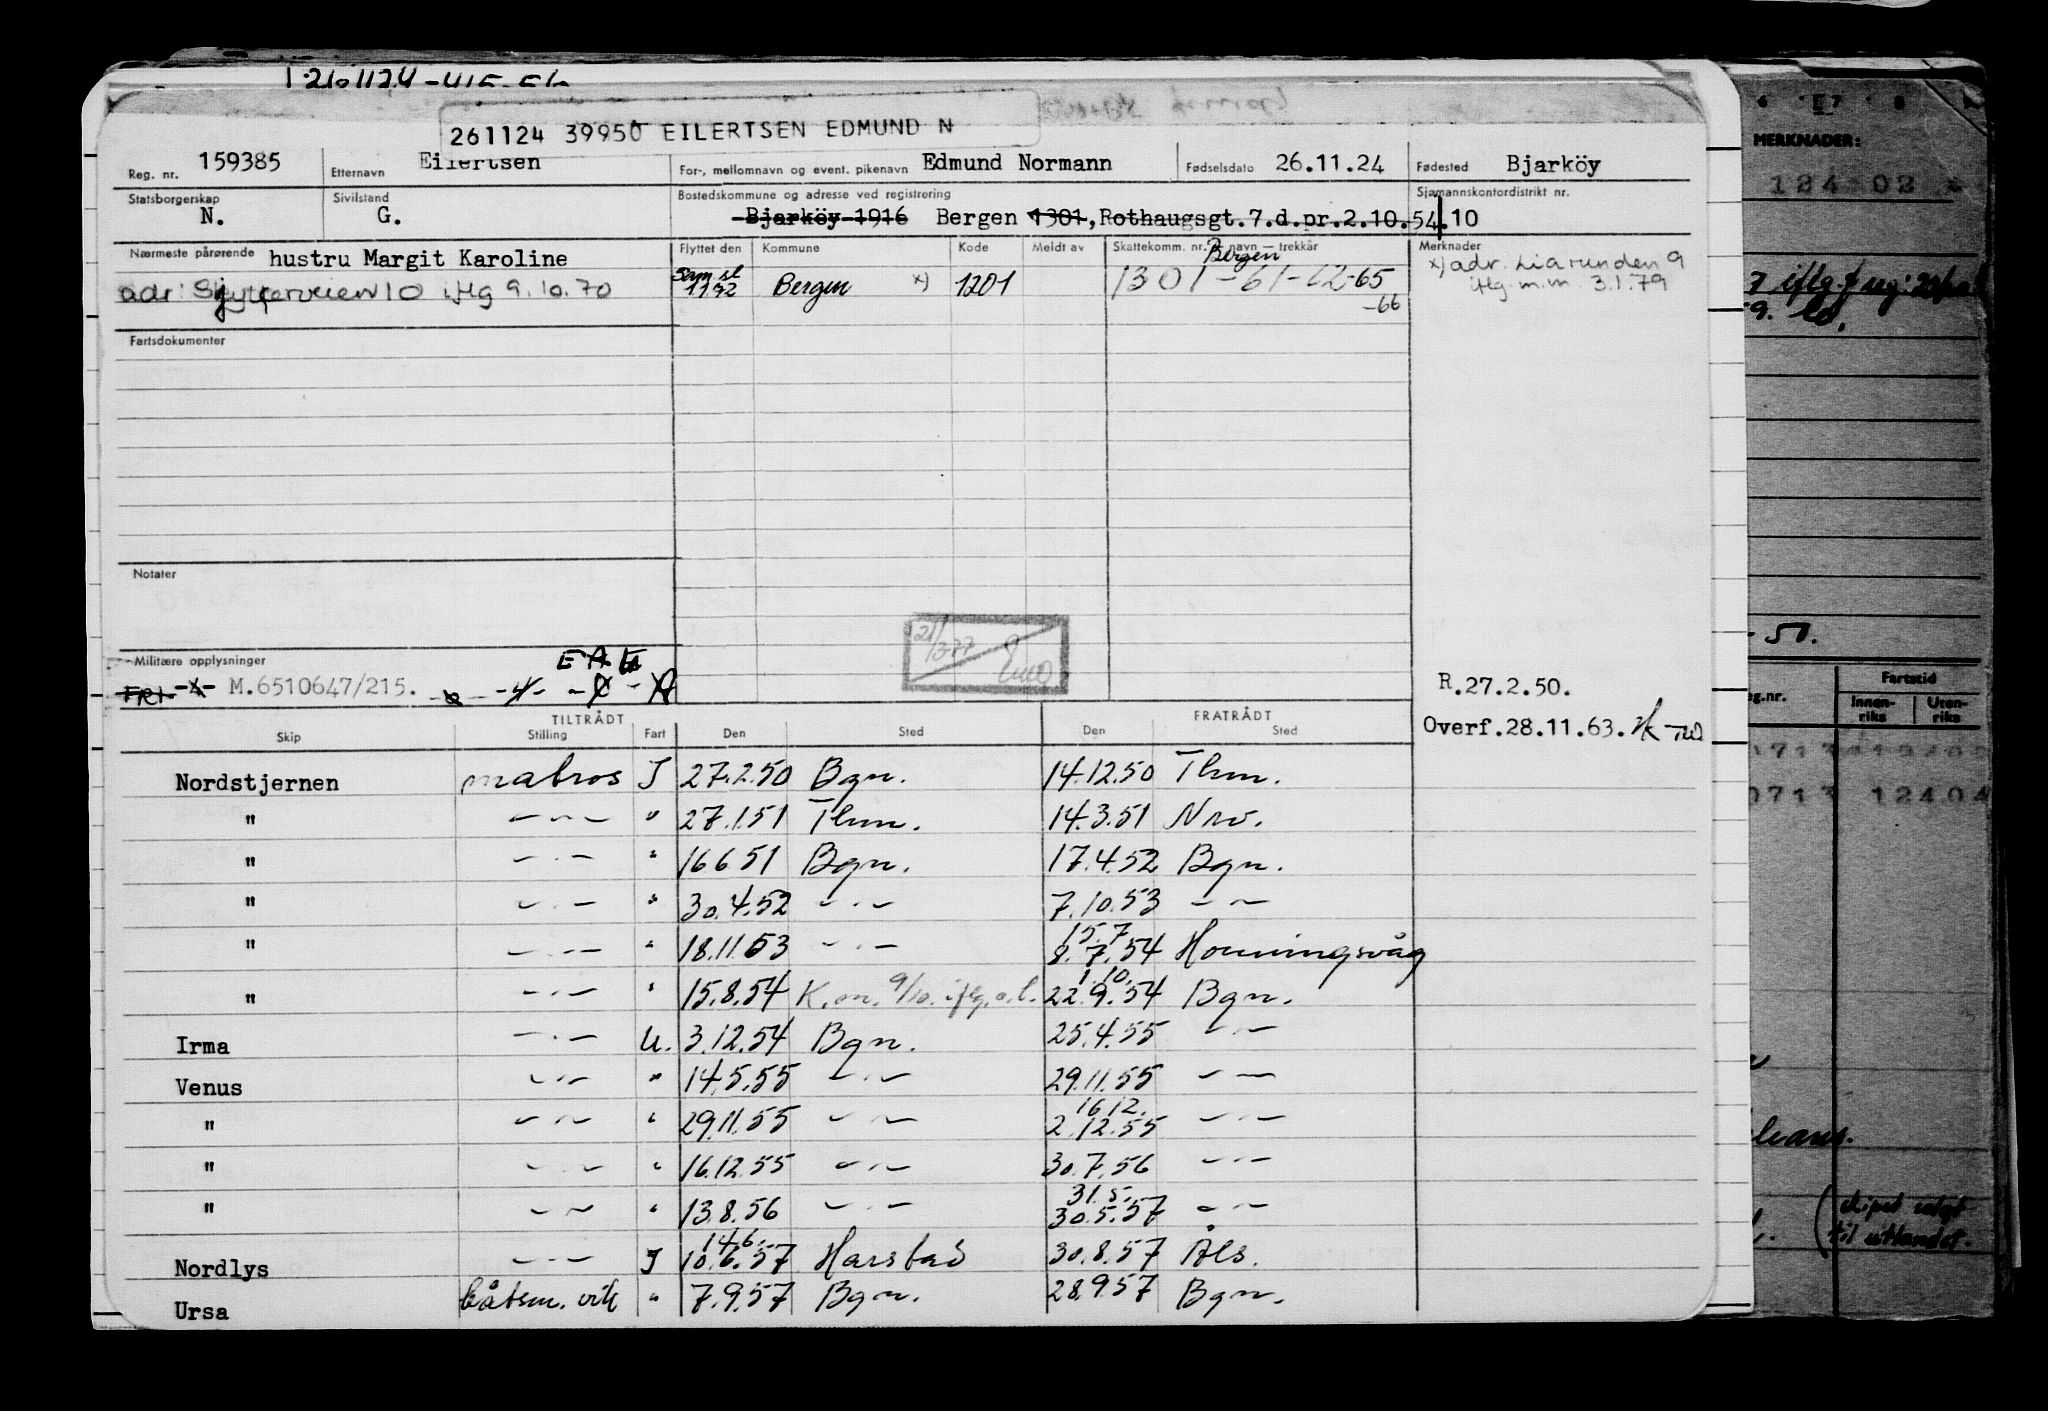 261124 39950 EILERTSEN EDMUND N
Reg. nr. 159385 Etternavn Eilertsen For-, mellomnavn og event. pikenavn Edmund Normann Fødselsdato 26.11.24 Fødested Bjarköy
Statsborgerskap N. Sivilstand G. Bostedskommune og adresse ved registrering Bjarköy 1916 Bergen 1301, Rothaugsgt.7.d.pr.2.10.54. Sjømannskontordistrikt nr. 10
Nærmeste pårørende hustru Margit Karoline Flyttet den Kommune Kode Meldt av Skattekomm. nr. - navn - trekkår Merknader
adr: 10 iflg 9.10.70 Bergen x) 1201 Bergen 1301-61-62-65
-66
x) adr. Liarunden 9
iflg. m.m. 3.1.79
Fartsdokumenter
Notater
Militære opplysninger
FRI M.6510647/215.
R.27.2.50.
Overf.28.11.63.
TILTRÅDT FRATRÅDT
Skip Stilling Fart Den Sted Den Sted
Nordstjernen matros I 27.2.50 Bgn. 14.12.50 Thm.
" — . — " 27.1.51 Thm. 14.3.51 Nrv.
" — . — " 16.6.51 Bgn. 17.4.52 Bgn.
" — . — " 30.4.52 — . — 7.10.53 — —
" — . — " 18.11.53 — . — 15.7. 8.7.54 Honningsvåg
" — . — " 15.8.54 K.m. 9/10. iflg. o.l. 1.10. 22.9.54 Bgn.
Irma — . — U. 3.12.54 Bgn. 25.4.55 — . —
Venus — . — " 14.5.55 — . — 29.11.55 — —
" — . — " 29.11.55 — . — 16.12. 2.12.55 — . —
" — . — " 16.12.55 — . — 30.7.56 — . —
" — . — " 13.8.56 — . — 31.5. 30.5.57 — . —
Nordlys — . — I 14.6. 10.6.57 Harstad 30.8.57 Åls.
Ursa båtsm. vik " 7.9.57 Bgn. 28.9.57 Bgn.
MERKNADER:
124 02
50.
Fartstid
Innen-riks Uten-riks
0713 12404
(skipet solgt
til utlandet.